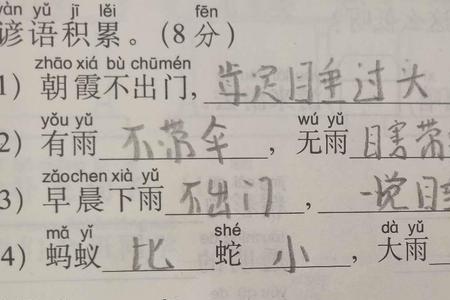 yàn yǔ jī lěi fēn
谚语积累。(8分)
zhāo xiá bù chūmén
1) 朝霞不出门, 肯定睡过大
yǒu yǔ wú yǔ
2) 有雨 不带伞 , 无雨 瞎带
zǎochen xià yǔ
3) 早晨下雨 不出门 , 一觉睡
mǎ yǐ shé dà yǔ
4) 蚂蚁 比 蛇 小 , 大雨